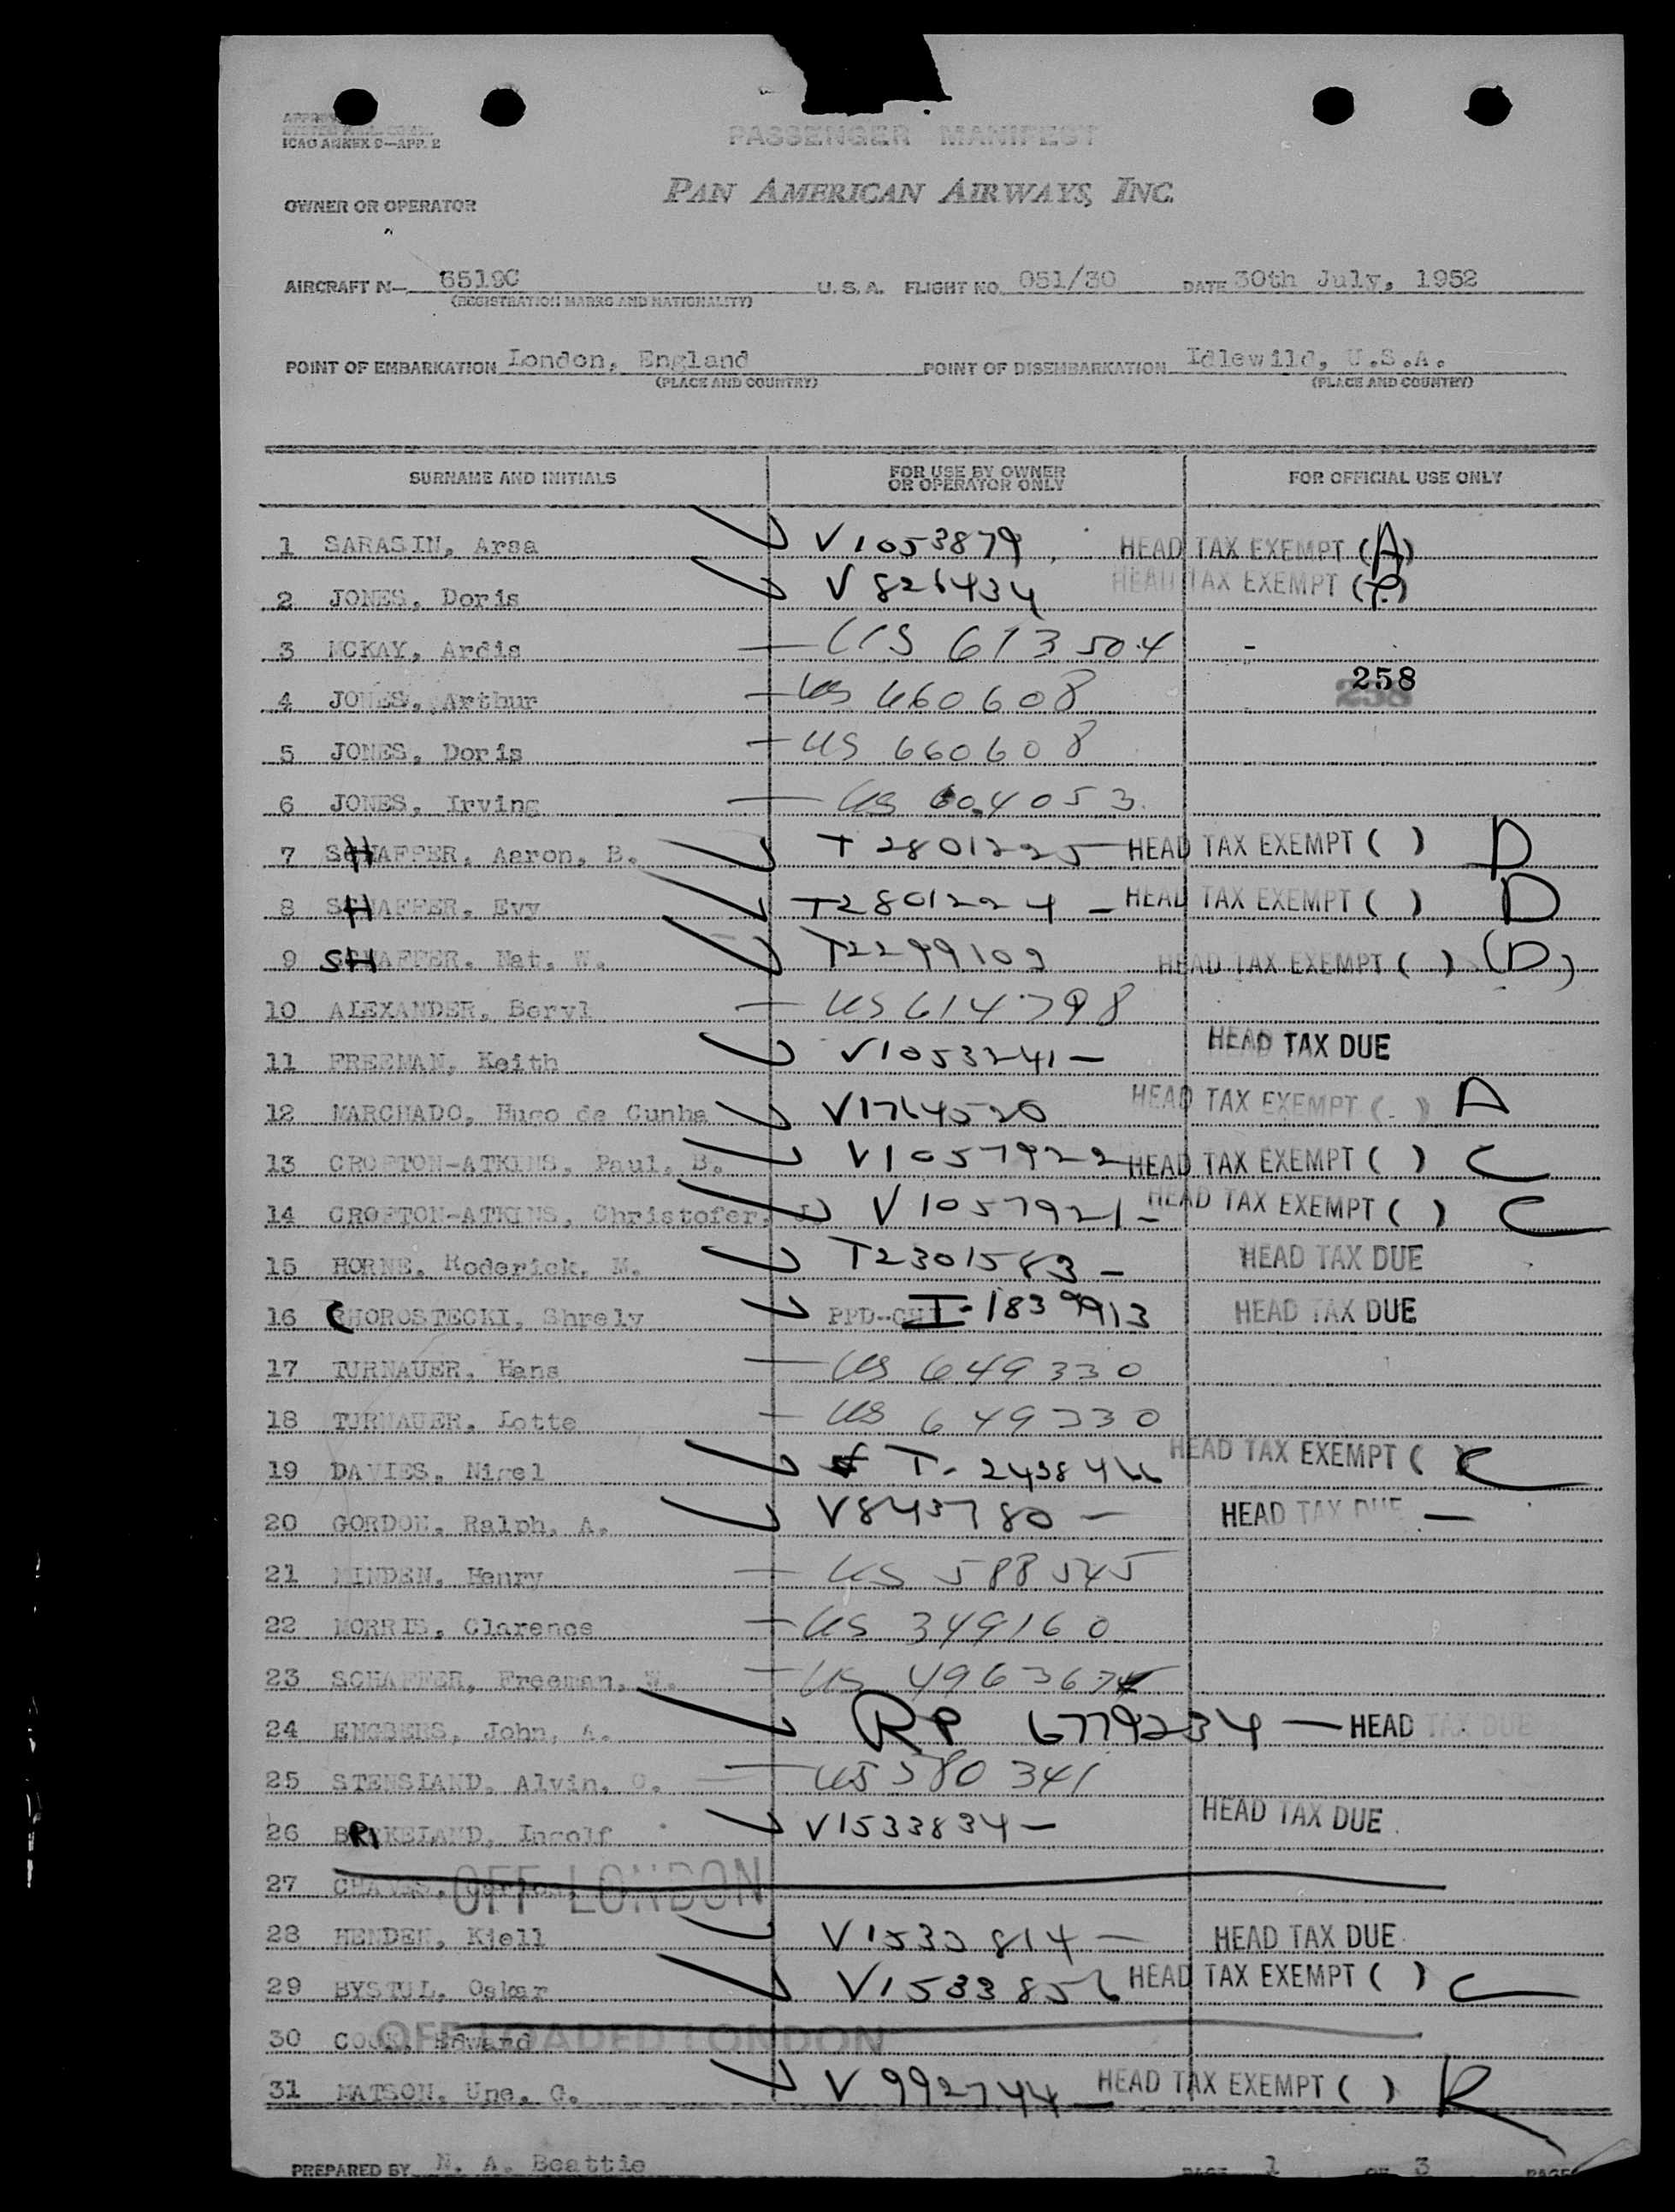 ICAO ANNEX 9—APP. E
PASSENGER MANIFEST
OWNER OR OPERATOR
PAN AMERICAN AIRWAYS, INC.
AIRCRAFT N— 6519C U. S. A. FLIGHT NO. 051/30 DATE 30th July, 1952
(REGISTRATION MARKS AND NATIONALITY)
POINT OF EMBARKATION London, England POINT OF DISEMBARKATION Idlewild, U.S.A.
(PLACE AND COUNTRY) (PLACE AND COUNTRY)
SURNAME AND INITIALS FOR USE BY OWNER OR OPERATOR ONLY FOR OFFICIAL USE ONLY
1 SARASIN, Arsa V1053879 HEAD TAX EXEMPT (A)
2 JONES, Doris V 826434 HEAD TAX EXEMPT ( )
3 MCKAY, Ardis US 613504
258
4 JONES, Arthur US 660608
5 JONES, Doris US 660608
6 JONES, Irving US 604053
7 SHAFFER, Aaron, B. T 2801225 HEAD TAX EXEMPT ( ) D
8 SHAFFER, Evy T2801224 - HEAD TAX EXEMPT ( ) D
9 SHAFFER, Nat, W. T2299109 HEAD TAX EXEMPT ( ) (D)
10 ALEXANDER, Beryl US 614798
11 FREEMAN, Keith V1053241 - HEAD TAX DUE
12 MARCHADO, Hugo de Cunha V1764520 HEAD TAX EXEMPT ( ) A
13 CROFTON-ATKINS, Paul, B. V1057922 HEAD TAX EXEMPT ( ) C
14 CROFTON-ATKINS, Christofer, J. V 1057921 - HEAD TAX EXEMPT ( ) C
15 HORNE, Roderick, M. T2301583 - HEAD TAX DUE
16 CHOROSTECKI, Shrely PPD- I-1839913 HEAD TAX DUE
17 TURNAUER, Hans US 649330
18 TURNAUER, Lotte US 649330
19 DAVIES, Nigel T-2438466 HEAD TAX EXEMPT ( ) C
20 GORDON, Ralph, A. V843780 - HEAD TAX DUE -
21 MINDEN, Henry US 588545
22 MORRIS, Clarence US 349160
23 SCHAFFER, Freeman, W. US
24 ENGBERS, John, A. RP 6779234 - HEAD TAX DUE
25 STENSLAND, Alvin, O. US 580341
26 BIRKELAND, Ingolf V1533834 - HEAD TAX DUE
27 OFF LONDON
28 HENDEN, Kjell V1533814 - HEAD TAX DUE
29 BYSTOL, Oskar V1533856 HEAD TAX EXEMPT ( ) C
30 COOK, Edward OFFLOADED LONDON
31 MATSON, Une, G. V 992744 - HEAD TAX EXEMPT ( ) R
PREPARED BY N. A. Beattie PAGE 1 OF 3 PAGES